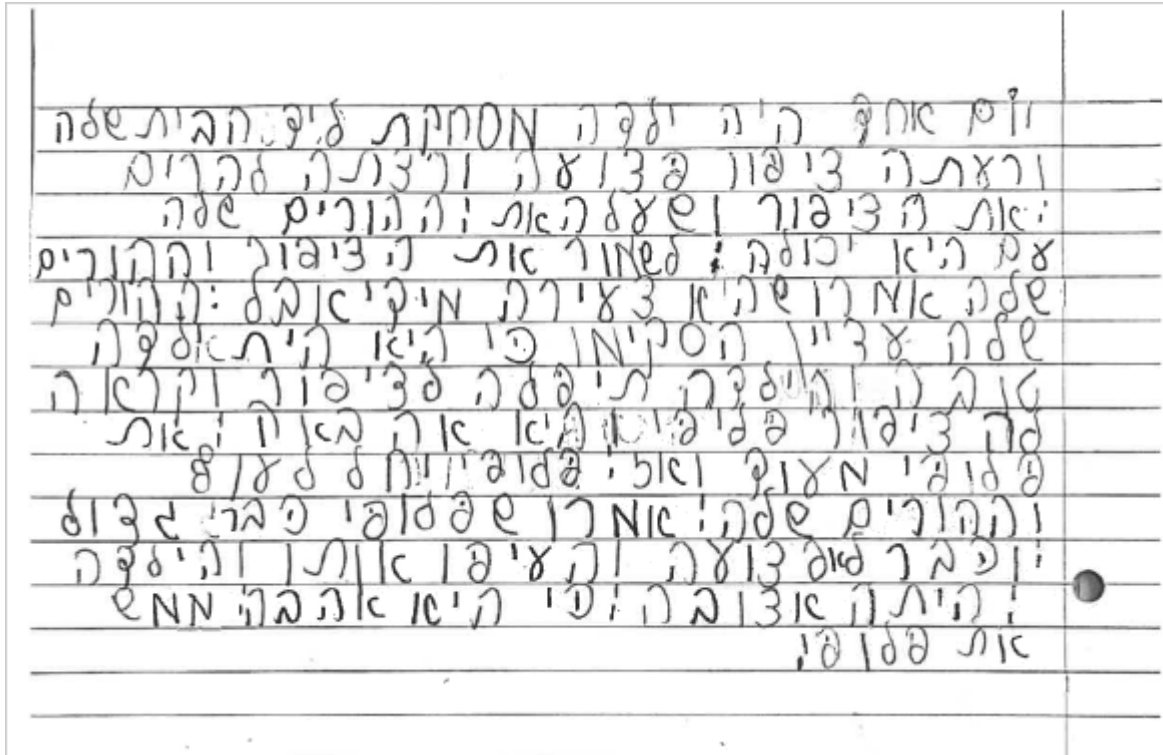 יום אחד היה ילדה מסחקת ליד הבית שלה
ורעתה ציפור פצועה ורצתה להרים
את הציפור ושעלה את ההורים שלה
עם היא יכולה לשמור את הציפור וההורים
שלה אמרו שהיא צעירה מידי אבל ההורים
שלה עדיין הסקימו כי היא הית אלדה
טובה והילדה תיפלה לציפור וקראה
לה ציפור פליפי היא אהבאה את
פלופי מעוד ואז פלופי יחל לעוף
וההורים שלה אמרו שפלופי כבר גדול
וכבר לא פצועה והעיפו אותו והילדה
היתה אצובה כי היא אהבה ממש
את פלופי